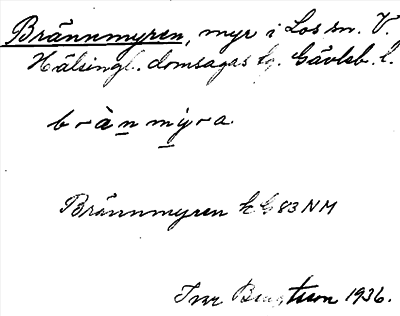 Brännmyren, myr i Los sn. V.
Hälsingl. domsagas tg. Gävleb. l.
bràn mỳra
Brännmyren 83 NM
Ivar Bengtsson 1936.